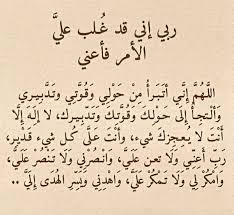 ربي إني قد غُلب عليَّ
الأمر فأعني
اللَّهُمَّ إِنَّي أَتبَرأُ مِنْ حَوْلِي وَقُوَّتِي وَتَدْبِيرِي
وَأَلْتَجأُ إِلَى حَوْلِكَ وَقُوَّتِكَ وَتَدْبِيرِك، لا إِلَهَ إِلَّا
أَنْتَ لا يُعجِزكَ شيء، وأَنْتَ عَلَى كُل شيءٍ قَدير،
رَبِّ أَعنِي وَلَا تعن عَلَيَّ، وَانْصُرْنِي وَلَا تَنْصُرْ عَلَيَّ،
وَامْكُرْ لِي وَلَا تَمْكُرْ عَلَيَّ، وَاهْدِنِي وَيَسِّرِ الْهُدَى إِلَيَّ ..